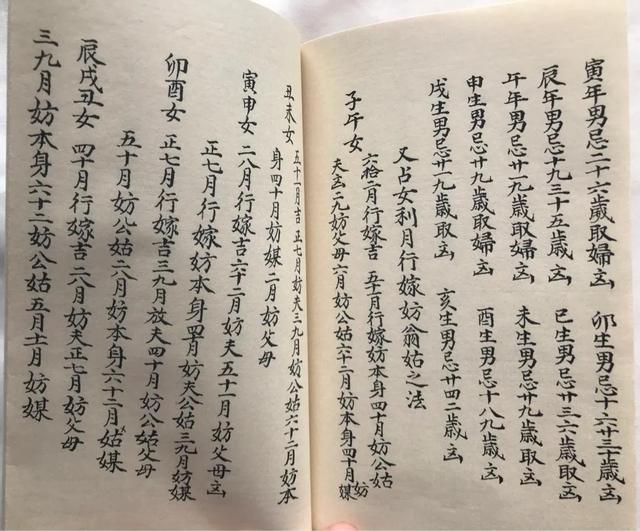 寅年男忌二十六歲取婦凶 卯生男忌十六廿三十歲凶
辰年男忌十九三十五歲凶 巳生男忌廿三六歲取凶
午年男忌廿一九歲取婦凶 未生男忌廿九歲取凶
申生男忌廿九歲取婦凶 酉生男忌十八九歲凶
戌生男忌廿一九歲取婦凶 亥生男忌廿四二歲凶
又占女利月行嫁妨翁姑之法
子午女 六拾二月行嫁吉 五十一月行嫁妨本身四十月妨公姑
夫凶二九妨父母六月妨公姑六十二月妨本身四十月妨媒
丑未女 五十一月吉 正七月妨夫三九月妨公姑六十二月妨本
身四十月妨媒二月妨父母
寅申女 二八月行嫁吉六十二月妨夫五十一月妨父母凶
正七月行嫁妨本身四十月妨夫公姑三九月妨媒
卯酉女 正七月行嫁吉三九月放夫四十月妨公姑父母
五十月妨公姑二八月妨本身六十二月姑媒
辰戌丑女 四十月行嫁吉二八月妨夫正七月妨父母
三九月妨本身六十二妨公姑五月十一月妨媒